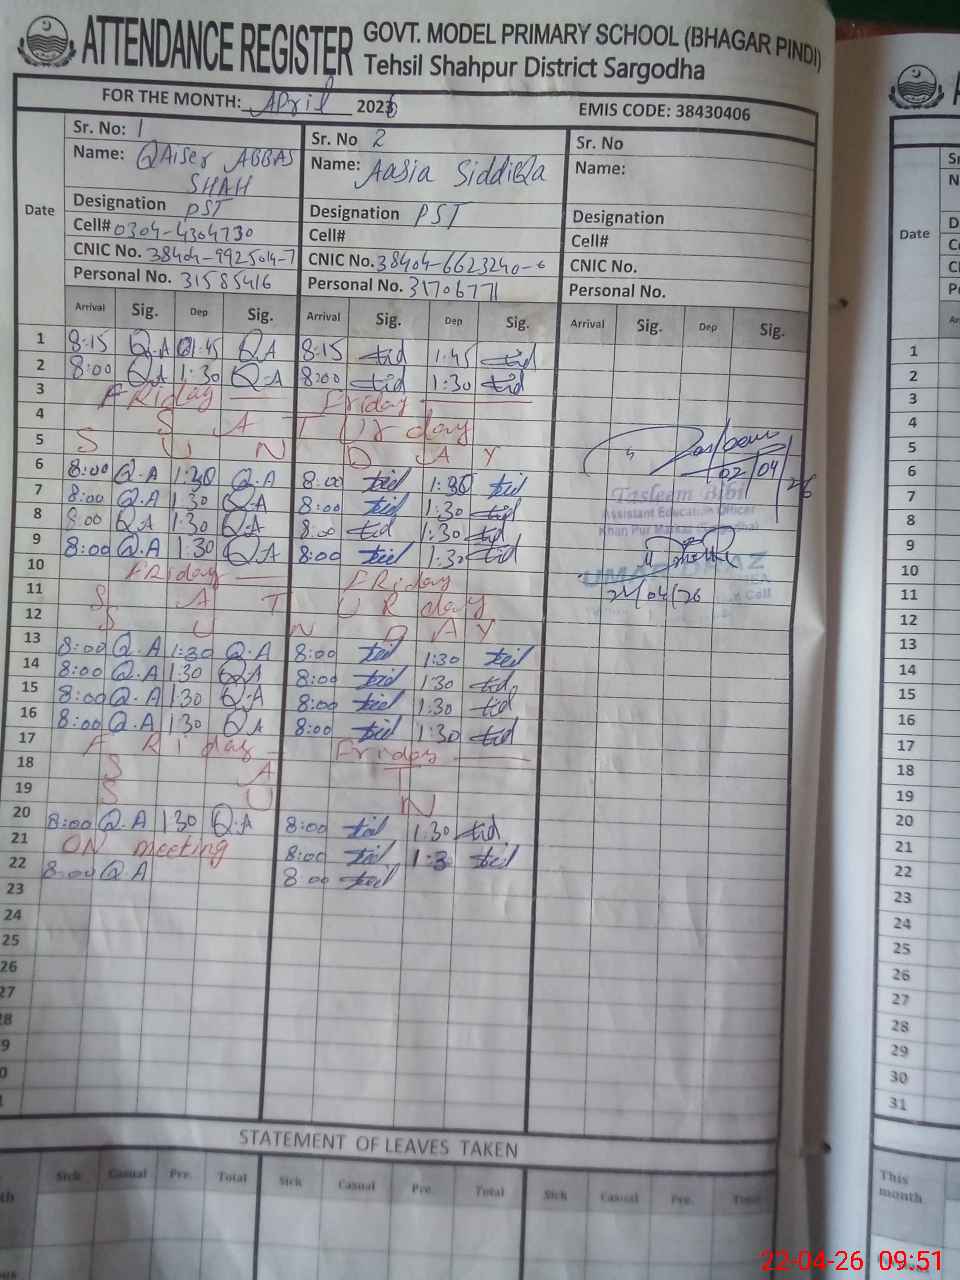 ATTENDANCE REGISTER GOVT. MODEL PRIMARY SCHOOL (BHAGAR PINDI)
Tehsil Shahpur District Sargodha
FOR THE MONTH: April 2026 EMIS CODE: 38430406
Sr. No: 1 Sr. No 2 Sr. No
Name: QAiser ABBAS SHAH Name: Aasia SiddiQa Name:
Date Designation PST Designation PST Designation
Cell# 0304-4304730 Cell# Cell#
CNIC No. 38404-9925014-7 CNIC No. 38404-6623240-6 CNIC No.
Personal No. 31585416 Personal No. 31706771 Personal No.
Arrival Sig. Dep Sig. Arrival Sig. Dep Sig. Arrival Sig. Dep Sig.
1 8:15 Q.A 1:45 QA 8:15 1:45
2 8:00 QA 1:30 Q.A 8:00 1:30
3 FRiday Friday
4 S A T Ur day
5 S U N D A Y
6 8:00 Q.A 1:30 Q.A 8:00 1:30
7 8:00 Q.A 1:30 QA 8:00 1:30
8 8:00 QA 1:30 QA 8:00 1:30
9 8:00 Q.A 1:30 QA 8:00 1:30
10 FRiday FRiday
11 S A T U R day
12 S U N D A Y
13 8:00 Q.A 1:30 Q.A 8:00 1:30
14 8:00 Q.A 1:30 QA 8:00 1:30
15 8:00 Q.A 1:30 Q.A 8:00 1:30
16 8:00 Q.A 1:30 QA 8:00 1:30
17 F Ri day Friday
18 S A T
19 S U N
20 8:00 Q.A 1:30 Q.A 8:00 1:30
21 ON meeting 8:00 1:3
22 8:00 Q A 8:00
23
24
25
26
27
02/04/26
Tasleem Bibi
Assistant Education Officer
21/04/26
STATEMENT OF LEAVES TAKEN
Sick Casual Pre. Total Sick Casual Pre. Total Sick Casual Pre. Total
Date
1
2
3
4
5
6
7
8
9
10
11
12
13
14
15
16
17
18
19
20
21
22
23
24
25
26
27
28
29
30
31
This month
22-04-26 09:51